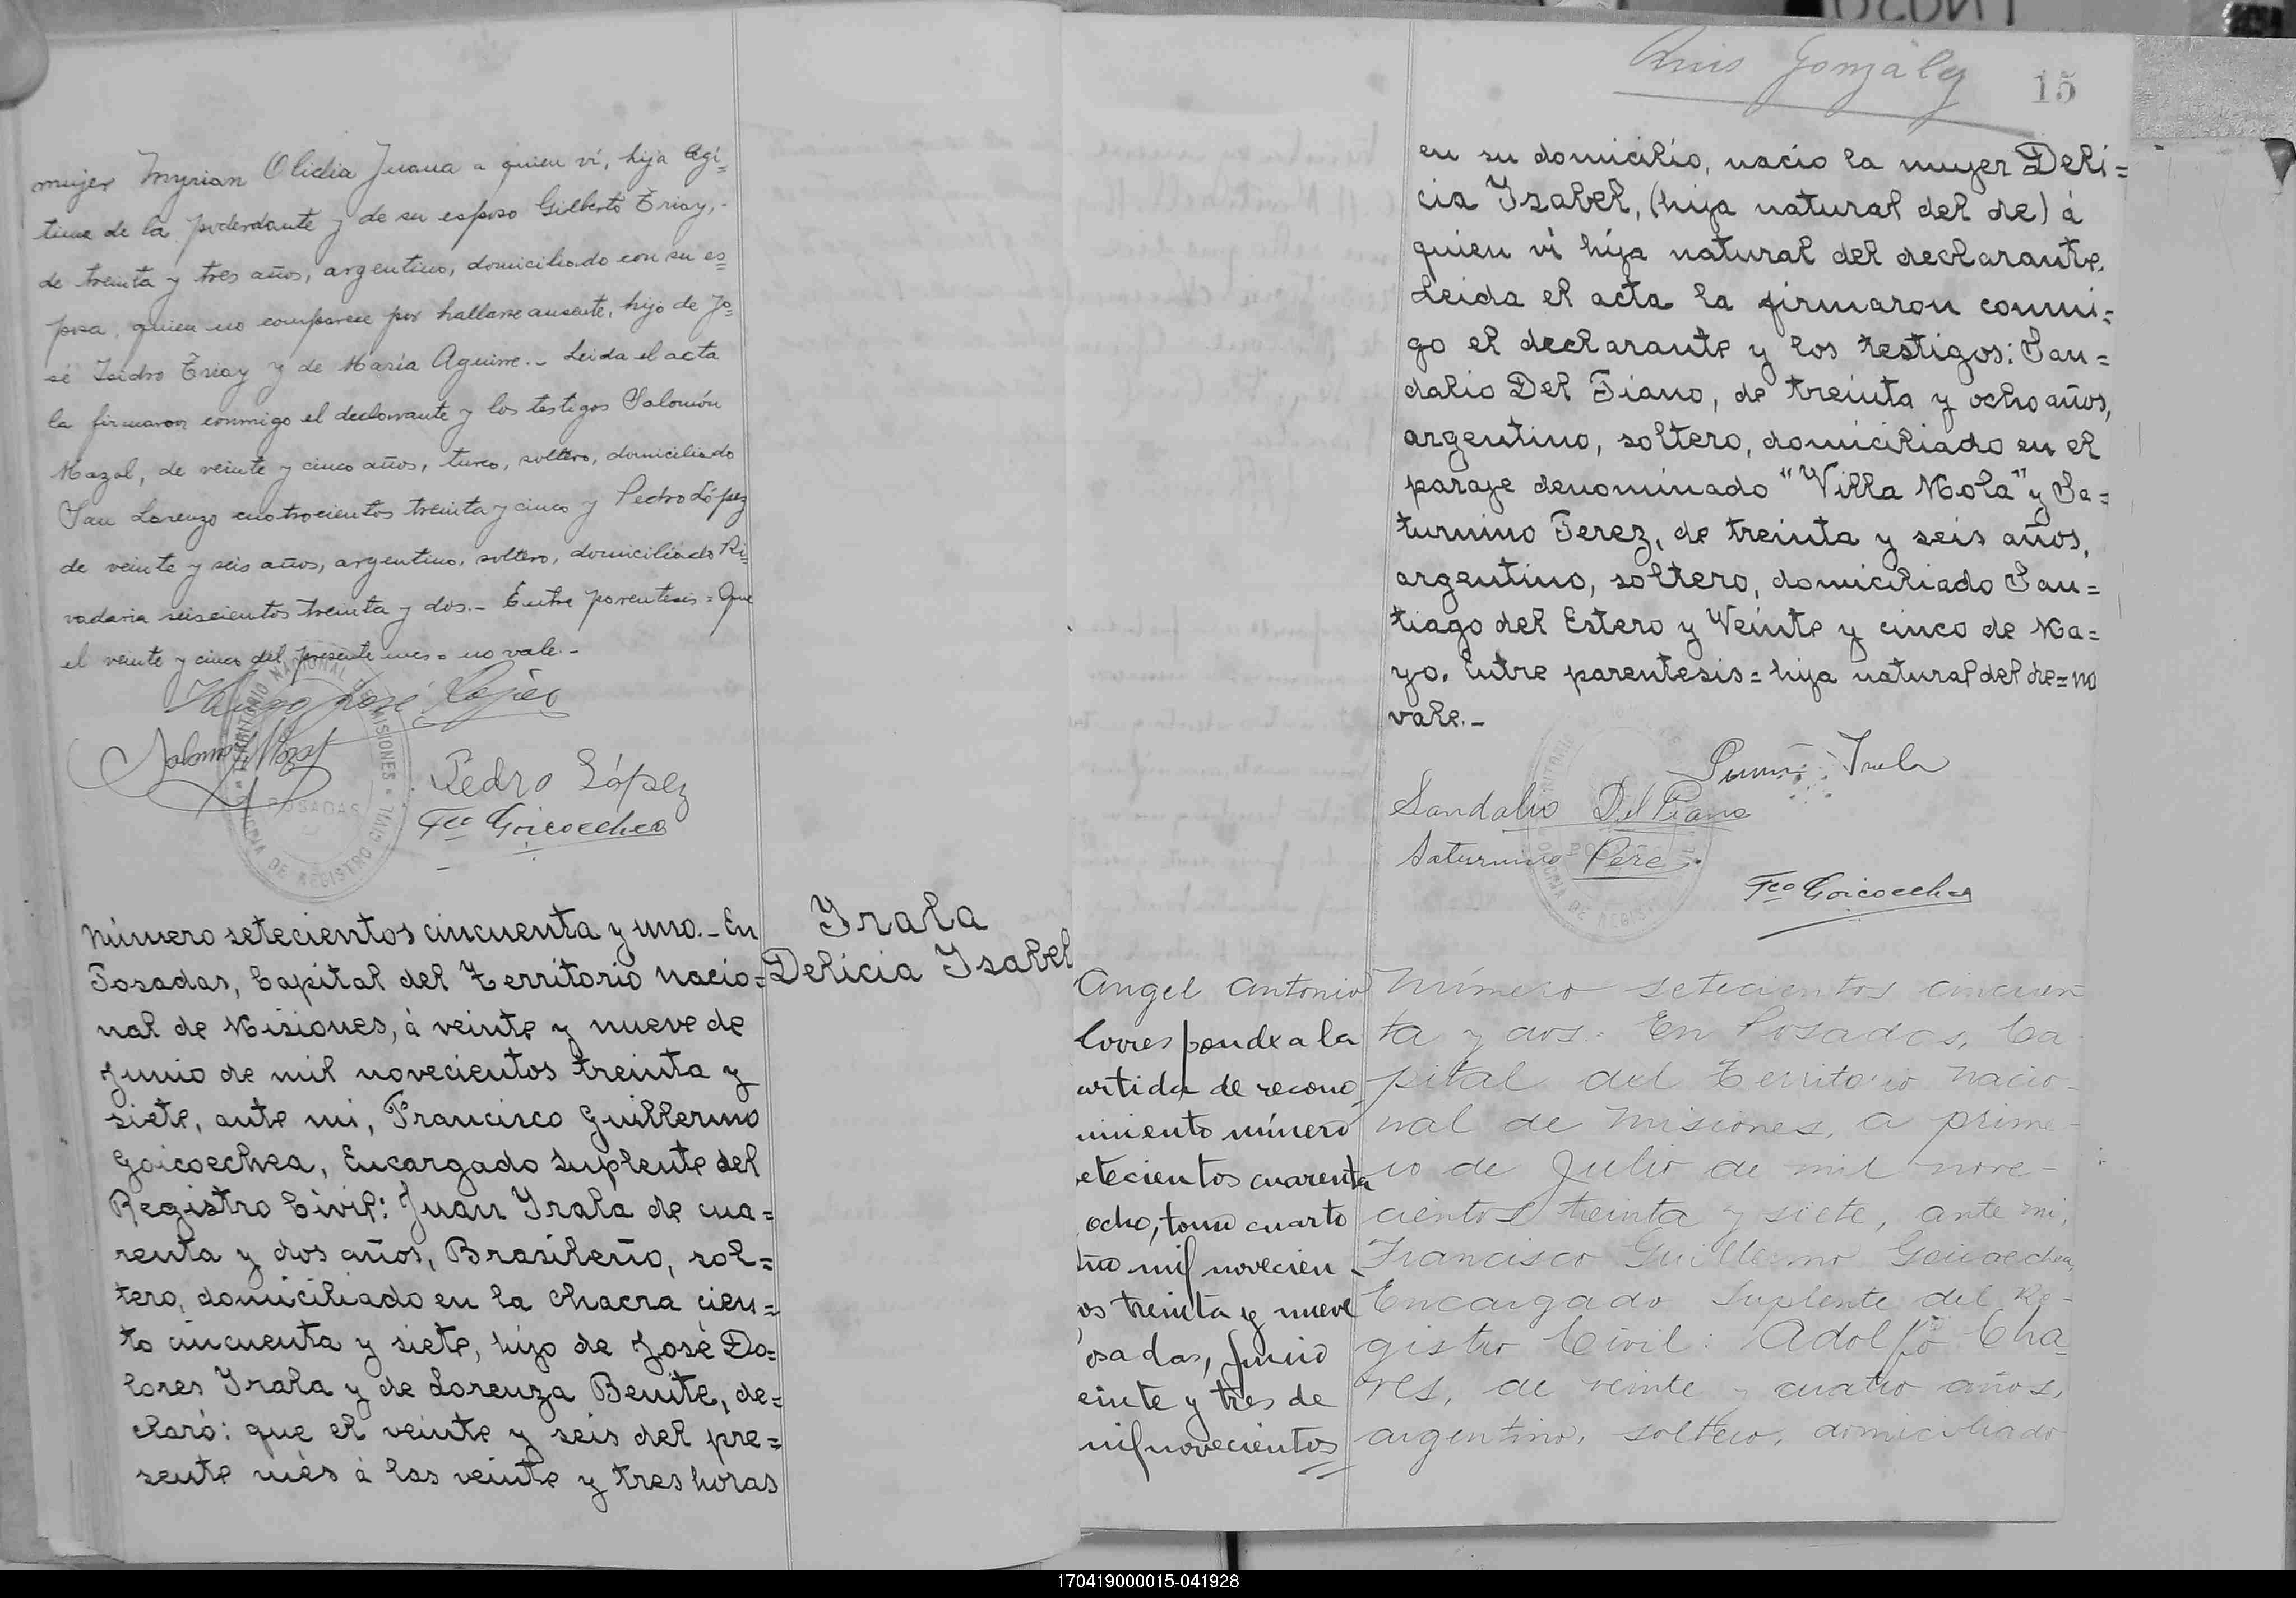 mujer Myrian Olidia Juana a quien ví, hija legí=
tima de la poderdante y de su esposo Gilberto Triay,-
de treinta y tres años, argentino, domiciliado con su es=
posa, quien no comparece por hallarse ausente, hijo de Jo=
sé Isidro Triay y de María Aguirre.- Leida el acta
la firmaron conmigo el declarante y los testigos Salomón
Mazal, de veinte y cinco años, turco, soltero, domiciliado
San Lorenzo cuatrocientos treinta y cinco y Pedro López
de veinte y seis años, argentino, soltero, domiciliado Ri=
vadavia seiscientos treinta y dos.- Entre parentesis = Que
el veinte y cinco del presente mes = no vale.-
José
Pedro López
Fco Goicoechea
POSADAS
Número setecientos cincuenta y uno.- En
Posadas, Capital del Territorio Nacio=
nal de Misiones, á veinte y nueve de
Junio de mil novecientos treinta y
siete, ante mi, Francisco Guillermo
Goicoechea, Encargado Suplente del
Registro Civil: Juan Irala de cua=
renta y dos años, Brasileño, sol=
tero, domiciliado en la chacra cien=
to cincuenta y siete, hijo de José Do=
lores Irala y de Lorenza Benite, de=
claró: que el veinte y seis del pre=
sente més á las veinte y tres horas
Irala
Delicia Isabel
Luis González
15
en su domicilio, nacio la mujer Deli=
cia Isabel, (hija natural del de) á
quien ví hija natural del declarante.
Leida el acta la firmaron conmi=
go el declarante y los testigos: San=
dalio Del Piano, de treinta y ocho años,
argentino, soltero, domiciliado en el
paraje denominado "Villa Mola" y Sa=
turnino Perez, de treinta y seis años,
argentino, soltero, domiciliado San=
tiago del Estero y Veinte y cinco de Ma=
yo. Entre parentesis = hija natural del de = no
vale.-
Irala
Sandalio Del Piano
Saturnino Pere
Fco Goicoechea
Angel Antonio
Corresponde a la
artida de recono
imiento número
etecientos cuarenta
ocho, tomo cuarto
ño mil novecien
os treinta y nueve
osadas, Junio
einte y tres de
mil novecientos
Número setecientos cincuen
ta y dos. En Posadas, Ca
pital del Territorio Nacio-
nal de Misiones, a prime-
ro de Julio de mil nove-
cientos treinta y siete, ante mi,
Francisco Guillermo Goicoechea,
Encargado Suplente del Re-
gistro Civil: Adolfo Cha
ves, de veinte y cuatro años,
argentino, soltero, domiciliado
170419000015-041928